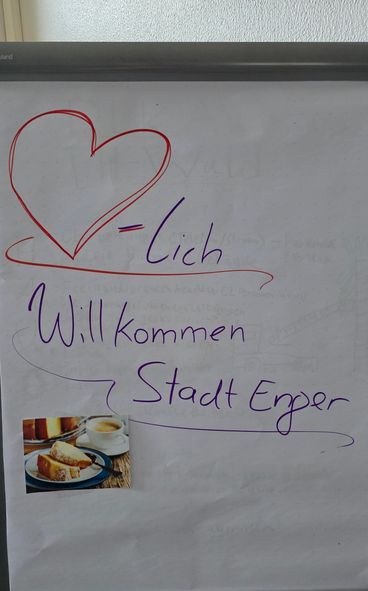 -Lich
Willkommen
Stadt Enger